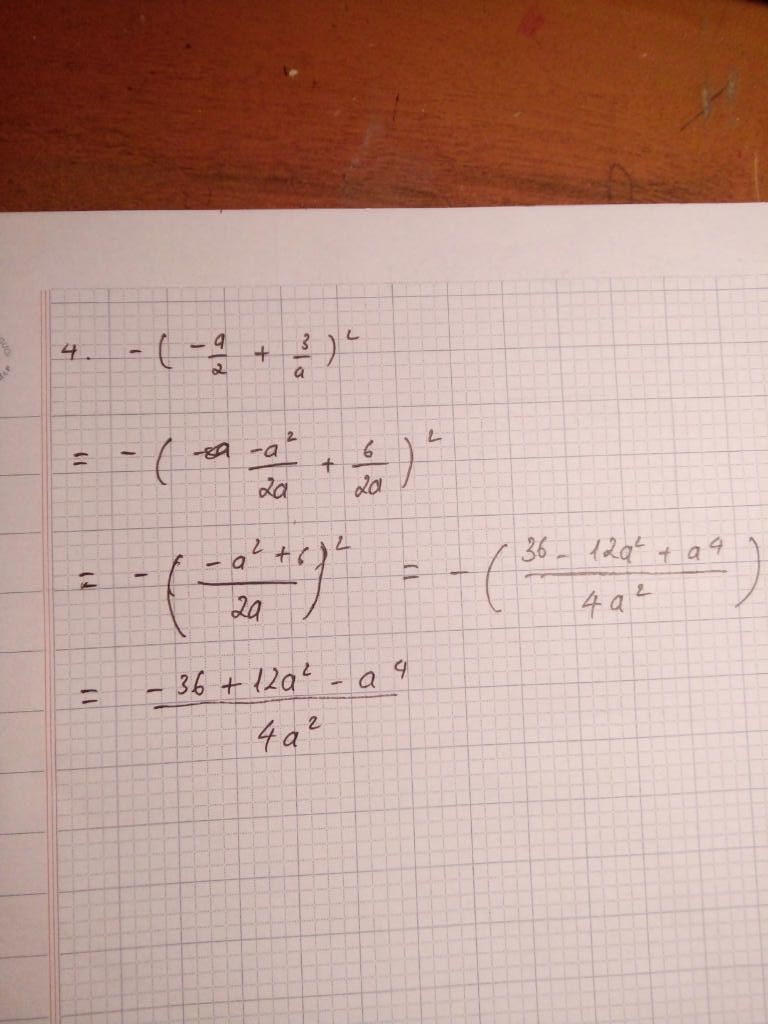 4. -( -a/2 + 3/a )²
= -( -a²/2a + 6/2a )²
= -( (-a² + 6)/2a )² = -( (36 - 12a² + a⁴)/4a² )
= (-36 + 12a² - a⁴)/4a²